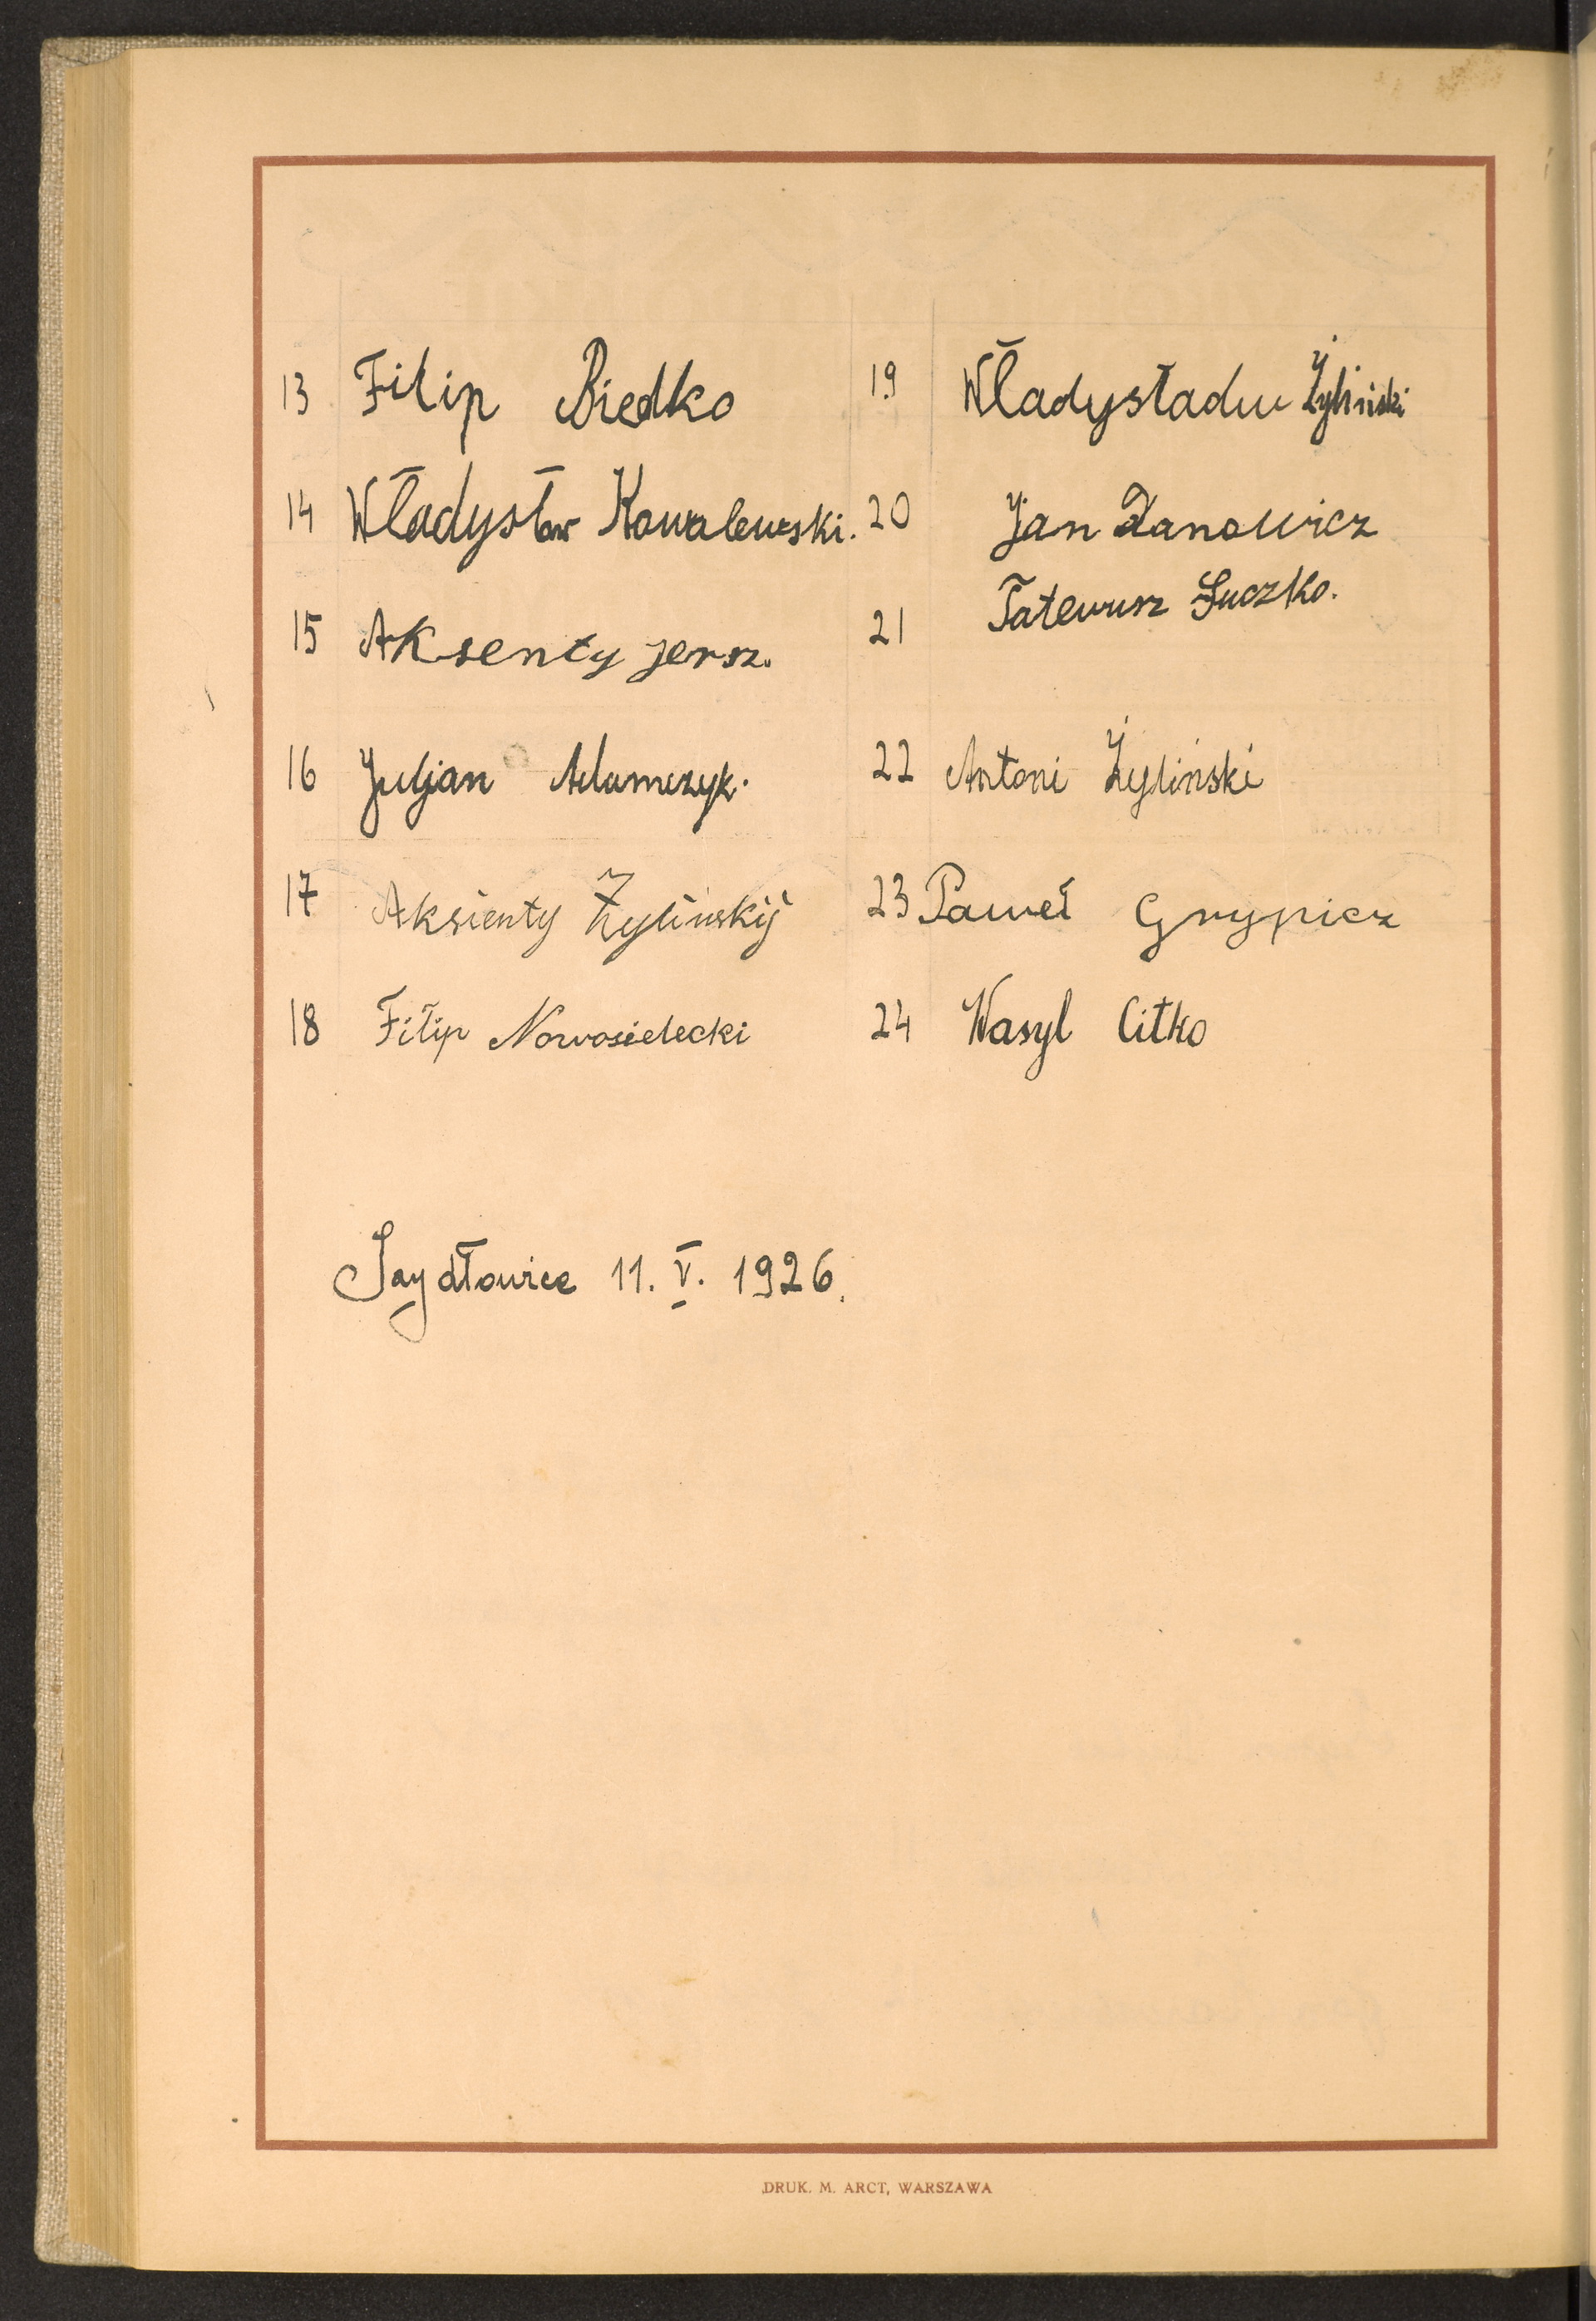 13 Filip Biedko
14 Władysław Kowalewski.
15 Aksenty jersz.
16 Juljan Adamczyk.
17 Aksienty Żylinskij
18 Filip Nowosielecki
19 Władysładw Żyliński
20 Jan Zanowicz
21 Tateusz Suczko.
22 Antoni Żyliński
23 Paweł Grypicz
24 Wasyl Citko
Saydłowice 11. V. 1926.
DRUK. M. ARCT, WARSZAWA